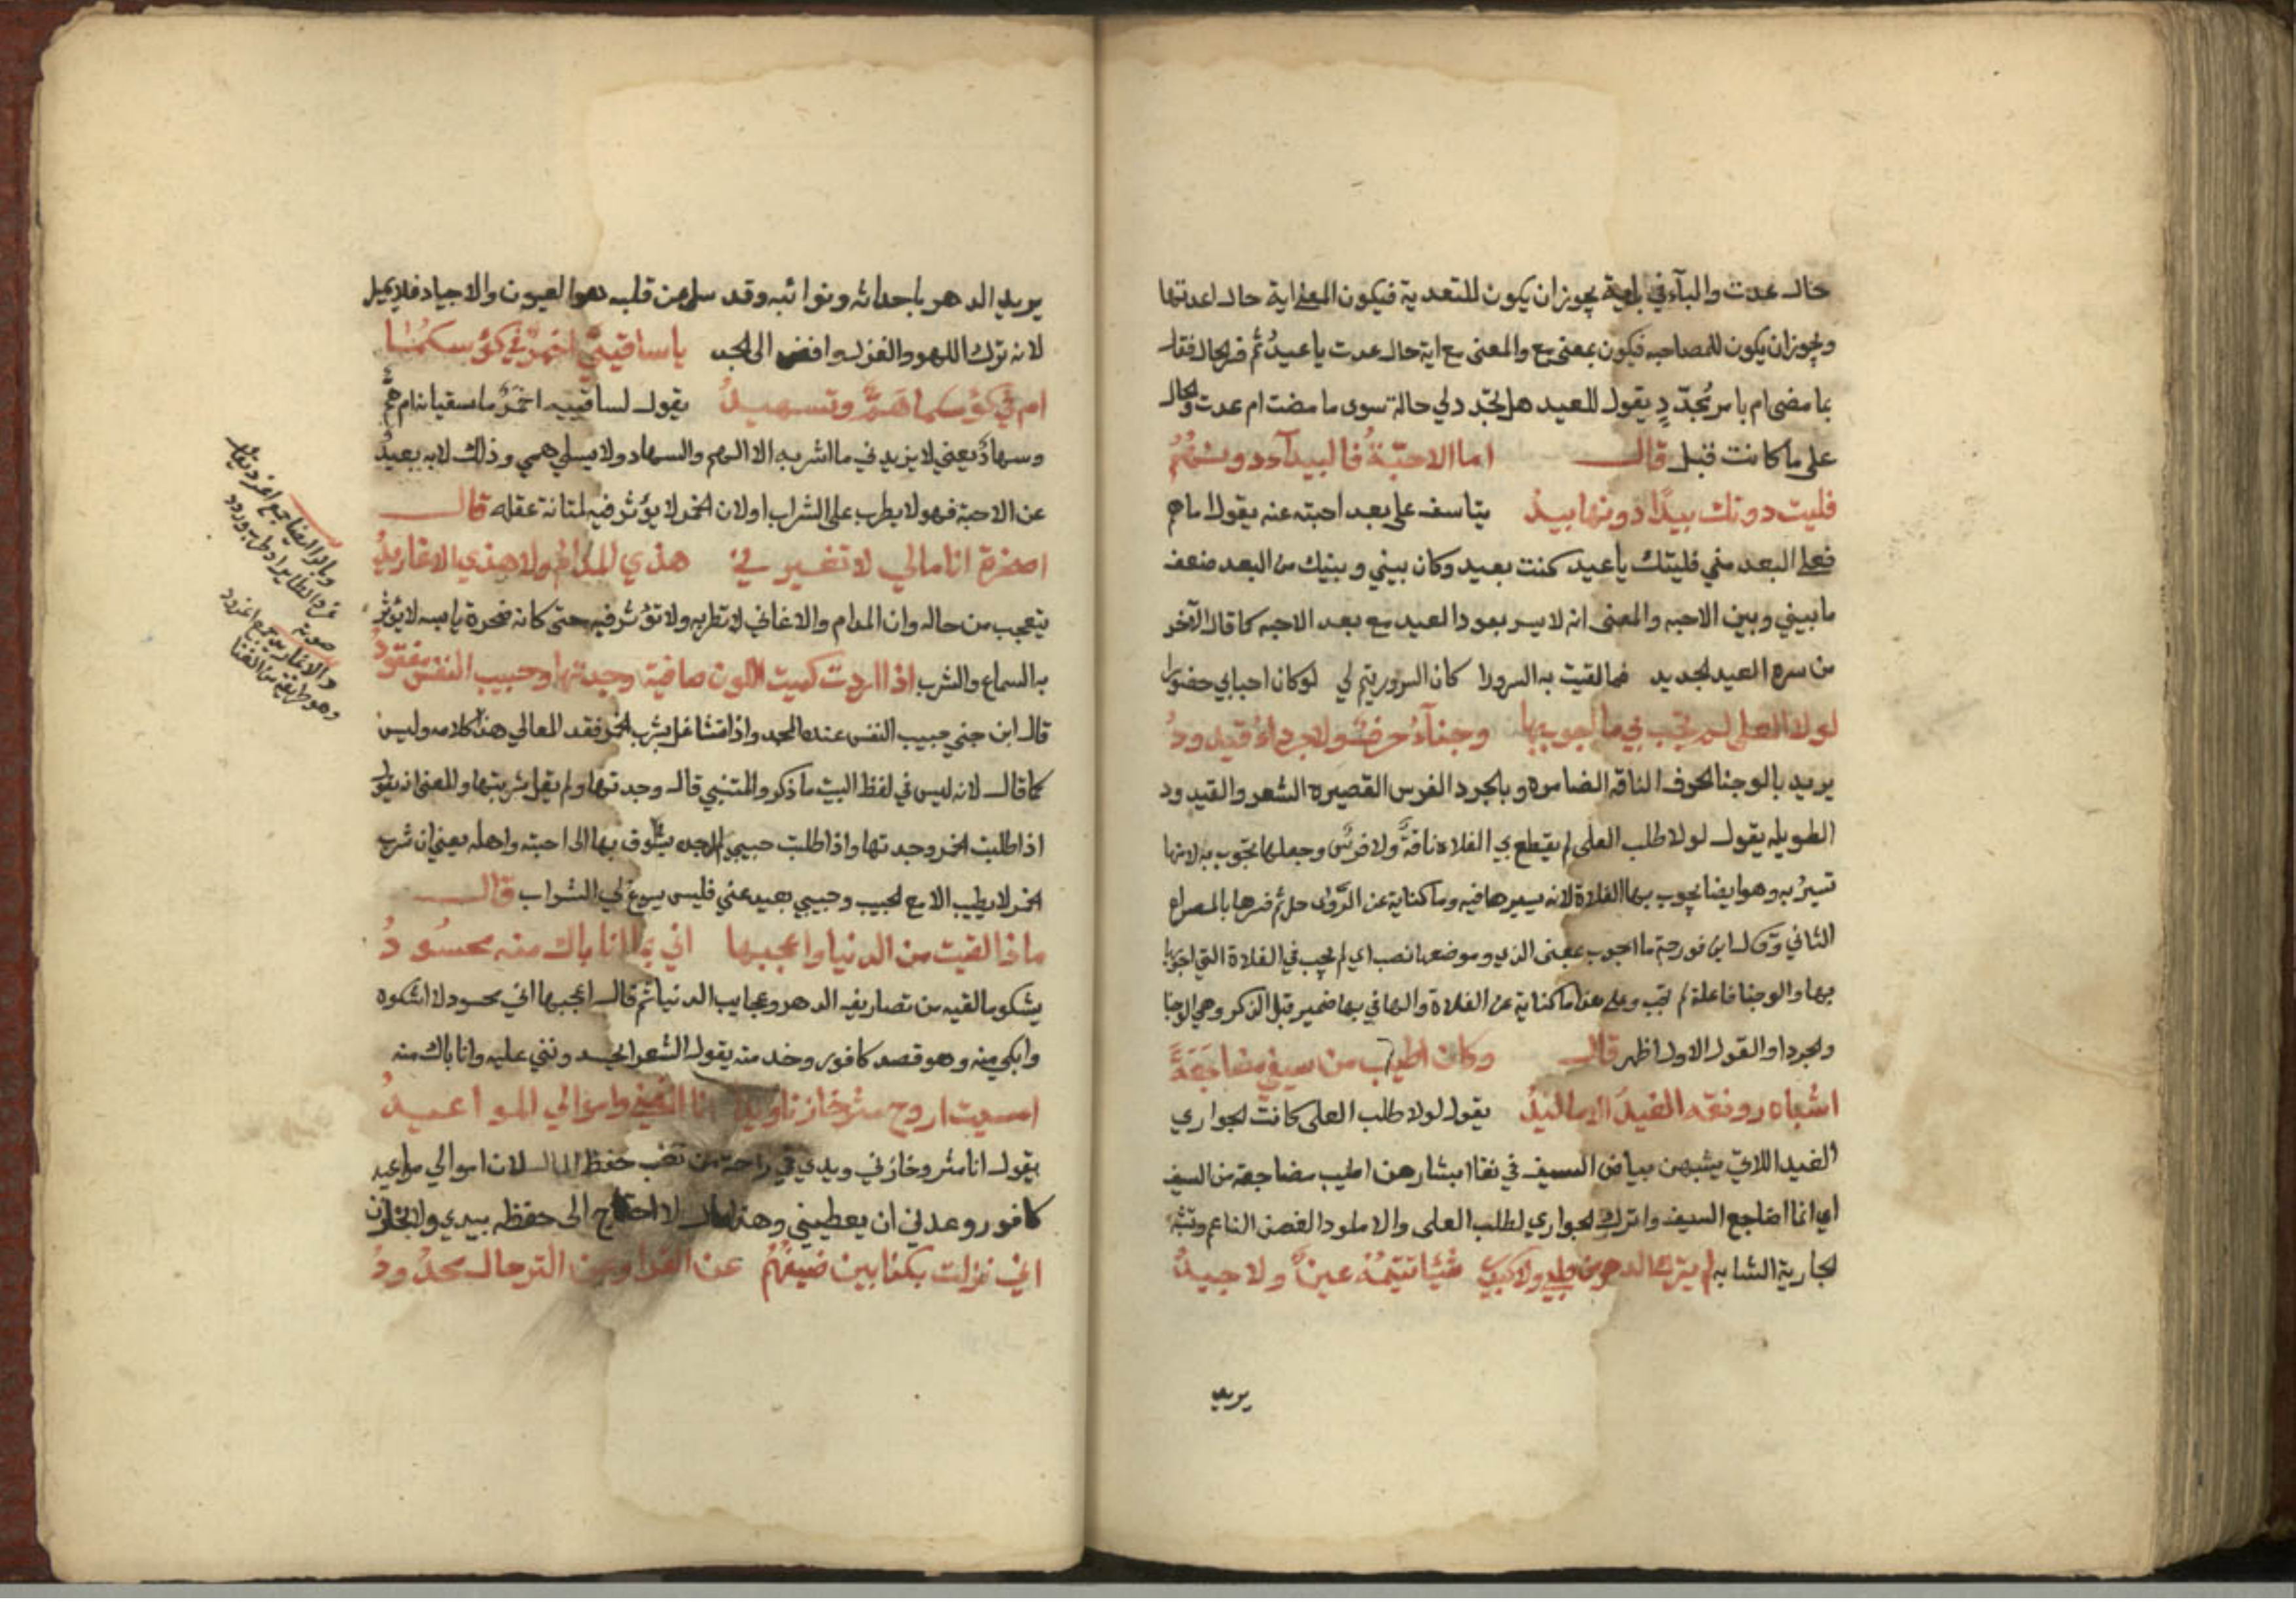 حال عدت والباء في باية يجوز ان يكون للتعدية فيكون المعنى اية حال اعدتها
ويجوز ان يكون للمصاحبه فيكون بمعنى مع والمعنى مع اية حال عدت يا عيدُ ثم فسر الحال فقال
بما مضى ام بامر تُجدّدِ يقول للعيد هل تجدد لي حالة سوى ما مضت ام عدت والحال
على ما كانت قبل قال اما الاحبّةُ فالبيدآء دونهُمُ
فليت دونك بيدًا دونها بيدُ يتاسف على بعد احبته عنه يقول اما هم
فعلى البعد مني فليتك يا عيد كنت بعيد وكان بيني وبينك من البعد ضعف
ما بيني وبين الاحبه والمعنى انه لا يسر بعود العيد مع بعد الاحبه كما قال الآخر
من سره العيد الجديد فما لقيت به السرورا كان السرور يتم لي لو كان احبابي حضورا
لولا العلى لم تجب بي ما اجوب بها وجنآءُ حرف ولا جرداءُ قيدودُ
يريد بالوجنا الحرف الناقه الضامره وبالجرد الفرس القصيره الشعر والقيدود
الطويله يقول لولا طلب العلى لم يقطع بي الفلاة ناقةٌ ولا فرسٌ وجعلها تجوب به لانها
تسيرُ به وهو ايضا يجوب بها الفلاة لانه يسيرها فيه وما كناية عن ثم فسرها بالمصراع
الثاني وقال ابن فورجة ما اجوب بمعنى الذي وموضعها نصب اي لم تجب في الفلاة التي اجوبها
بها والوجنا فاعلة لم تجب وعلى هذا ما كناية عن الفلاة والها في بها ضمير قبل الذكر وهي الوجنا
والجردا والقول الاول اظهر قال وكان اطيب من سيفي مضاجَعَةً
اشباه رونقه الغيدُ الاماليدُ يقول لولا طلب العلى كانت الجواري
الغيد اللاتي يشبهن بياض السيف في نقا ابشارهن اطيب مضاجعة من السيف
اي انما اضاجع السيف واترك الجواري لطلب العلى والاملود الغصن الناعم وتشبه
الجارية الشابه لم يترك الدهر من قلبي ولا كبدي شيًا تتيّمُهُ عينٌ ولا جيدُ
يريد
يريد الدهر باحداثه ونوائبه وقد سلا عن قلبه هوا العيون والاجياد فلا يميل
لانه ترك اللهو والغزل وافضى الى الجد يا ساقييَّ اخمرٌ في كؤسكمُا
ام في كؤسكما همٌّ وتسهيدُ يقول لساقييه اخمرٌ ما سقيانا ام همٌّ
وسهادٌ يعني لا يزيدني ما اشربه الا الهم والسهاد ولا يسلي همي وذلك لانه بعيدُ
عن الاحبة فهو لا يطرب على الشراب او لان الخمر لا يؤثر فيه لمتانة عقله قال
اصخرة انا مالي لا تغيرني هذي المدام ولا هذي الاغاريدُ
يتعجب من حاله وان المدام والاغاني لا تطربه ولا تؤثر فيه حتى كانه صخرة يابسه لا يؤثر
به السماع والشرب اذا اردت كميت اللون صافية وجدتها وحبيب النفس مفقودُ
قال ابن جني حبيب النفس عنده المجد واذا تشاغل بشرب الخمر فقد المعالي هذا كلامه وليس
كما قال لانه ليس في لفظ البيت ما ذكر والمتنبي قال وجدتها ولم يقل شربتها والمعنى انه يقول
اذا طلبت الخمر وجدتها واذا طلبت حبيبي لم اجده يتشوق بها الى احبته واهله يعني ان شرب
الخمر لا يطيب الا مع الحبيب وحبيبي بعيد عني فليس يسوغ لي الشراب قال
ماذا لقيت من الدنيا واعجبها اني بما انا باك منه محسُودُ
يشكو ما لقيه من تصاريف الدهر وعجايب الدنيا ثم قال اعجبها اني محسود لا اشكوه
وابكي منه وهو قصد كافور وخدمته يقول الشعرا تحسدونني عليه وانا باك منه
امسيت اروح مثرٍ خازنا ويدا انا الغني واموالي المواعيدُ
يقول انا مثر وخازني ويدي في راحة من تعب حفظ المال لان اموالي مواعيد
كافور وعدني ان يعطيني وهذا مال لا احتاج الى حفظه بيدي ولا بخازن
اني نزلت بكذابين ضيفُهُمُ عن القرا وعن الترحال محدُودُ
ويالوالفتا جمع اغرود يقال
غرد الطاير اذا طرب وردد
صوته
والاغاريد جمع اغرود
وهو طايفة من الغنا